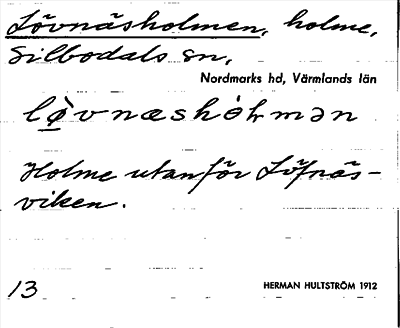 Lövnäsholmen, holme,
Silbodals sn,
Nordmarks hd, Värmlands län
Holme utanför Löfnäs-
viken.
13
HERMAN HULTSTRÖM 1912